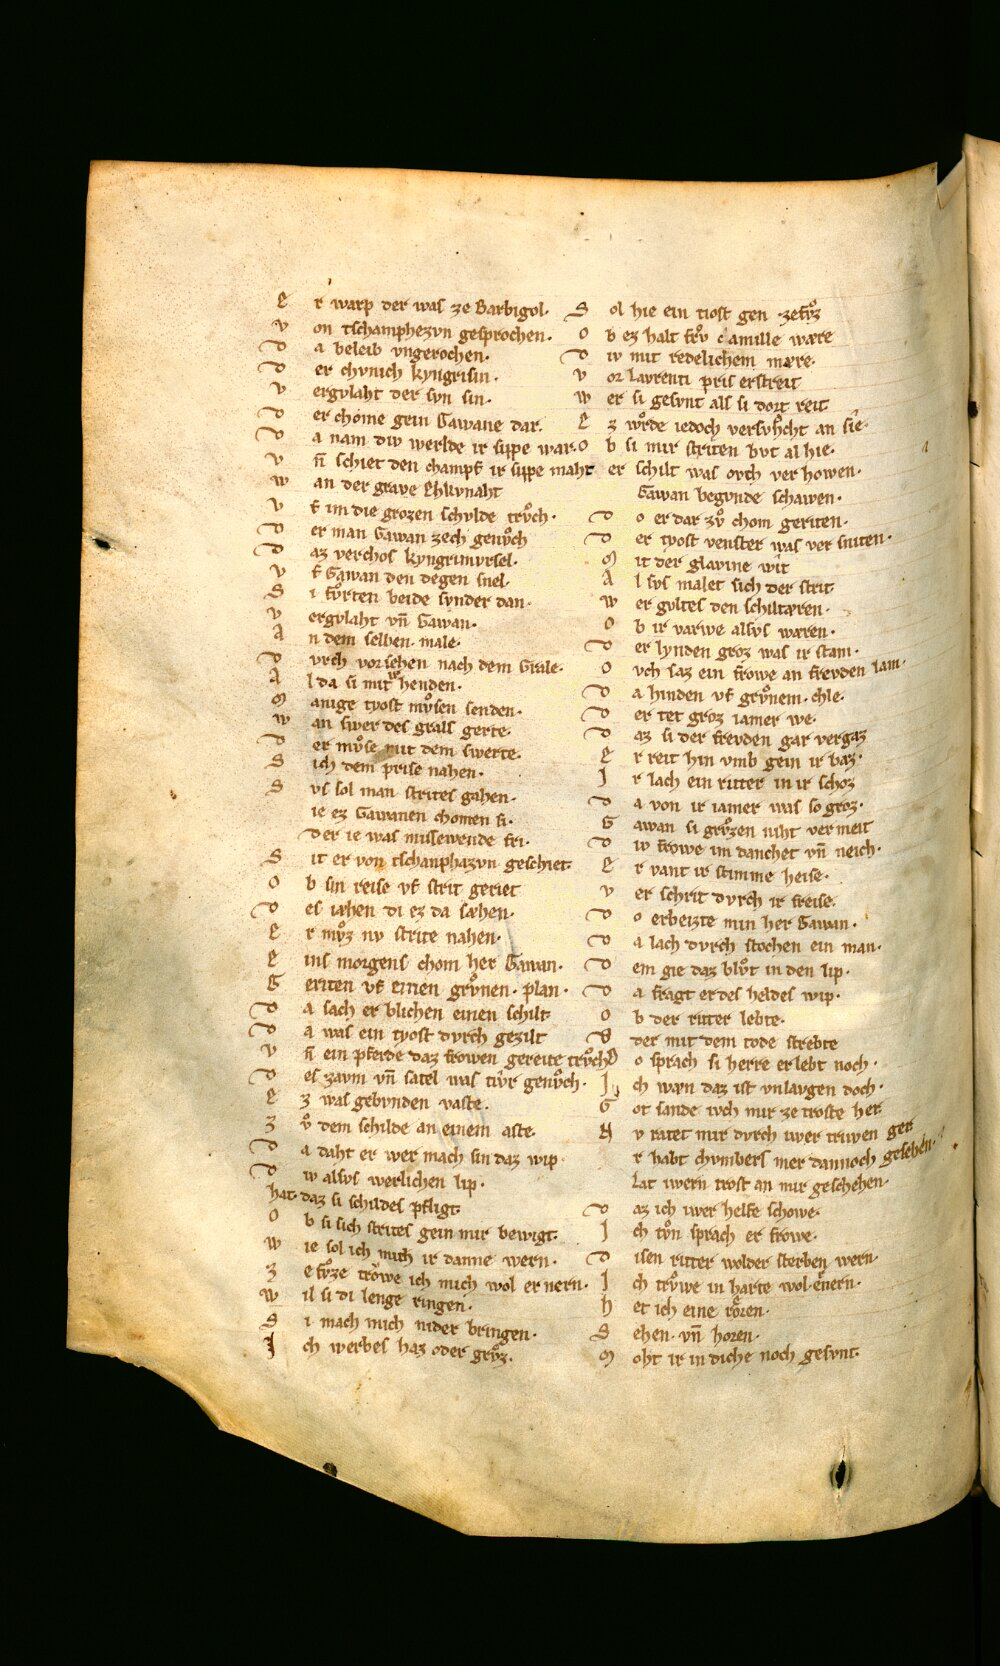 E r warp der was ze Barbigol·
v on tschamphezvn gesprochen·
D a beleib vngerochen·
D er chvnich kyngrisin·
v ergvlaht der svn sin·
D er chome gein Gawane dar·
D a nam div werlde ir sippe war·
v n̄ schiet den champf ir sippe maht
w an der grave Ehkvnaht
v f im die grozen schvlde trv̊ch·
D er man Gawan zech genv̊ch
D az verchos kyngrimvrsel·
v f Gawan den degen snel·
S i fv̊rten beide svnder dan·
v ergvlaht vn̄ Gawan·
A n dem selben· male·
D vrch vorsehen nach dem Grale·
A l da si mit ir henden·
M anige tyost mv̊sen senden·
w an swer des grals gerte·
D er mv̊se mit dem swerte·
S ich dem prise nahen·
S vs sol man strites gahen·
ie ez Gawanen chomen si·
Der ie was missewende fri·
S it er von tschanphazvn geschiet·
O b sin reise vf strit geriet
D es iæhen di ez da sæhen·
E r mv̊z nv strite nahen·
E ins morgens chom her Gawan·
G eriten vf einen grv̊nen· plan·
D a sach er blichen einen schilt·
D a was ein tyost dvrch gezilt
v n̄ ein pferde daz frowen gereite trv̊ch
D es zavm vn̄ satel was tiv̂r genv̊ch·
E z was gebvnden vaste·
Z v̊ dem schilde an einem aste·
D a daht er wer mach sin daz wip
D iv alsvs werlichen lip·
hat· daz si schildes pfligt·
O b si sich strites gein mir bewigt·
w ie sol ich mich ir danne wern·
Z e fv̊ze trowe ich mich wol er nern·
w il si di lenge ringen·
S i mach mich nider bringen·
I ch werbes haz oder grv̊z·
S ol hie ein tiost gen ·zefv̊z
O b ez halt frv̊ Camille wære
D iv mit redelichem mære·
v or lavrenti pris erstreit
w er si gesvnt als si dort reit·
E z wv̊rde iedoch versv̊cht an sîe·
O b si mir striten bvt al hie·
er schilt was ovch ver howen·
Gawan begvnde schawen·
D o er dar zv̊ chom geriten·
D er tyost venster was ver sniten·
M it der glavine wît
A l svs malet sich der strit·
w er gvltes den schiltæren·
O b ir varwe alsvs wæren·
D er lynden groz was ir stam·
O vch saz ein frowe an frevden lam·
D a hinden vf grv̊nem· chle·
D er tet groz iamer we·
D az si der frevden gar vergaz
E r reit hin vmb gein ir baz·
I r lach ein ritter in ir schoz
D a von ir iamer was so groz·
G awan si grv̊zen niht vermeit
D iv frowe im danchet vn̄ neich·
E r vant ir stimme heise·
v er schrit dvrch ir freise·
D o erbeizte min her Gawan·
D a lach dvrch stochen ein man·
D em gie daz blv̊t in den lip·
D a fragt er des heldes wip·
O b der ritter lebte·
O der mit dem tode strebte
D o sprach si herre er lebt noch·
I ch wæn daz ist vnlavgen doch·
G ot sande ivch mir ze troste her·
N v ratet mir dvrch iwer triwen ger
r habt chvmbers mer dannoch gesehen·
Lat iwern trost an mir geschehen·
D az ich iwer helfe schowe·
I ch tv̊n sprach er frowe·
D isen ritter wolder sterben wern·
I ch trv̊we in harte wol·enern·
h et ich eine rœren·
S ehen· vn̄ horen·
M oht ir in diche noch gesvnt·